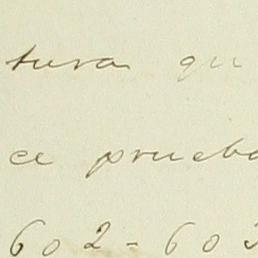 tura qu
ce prueba
602-603